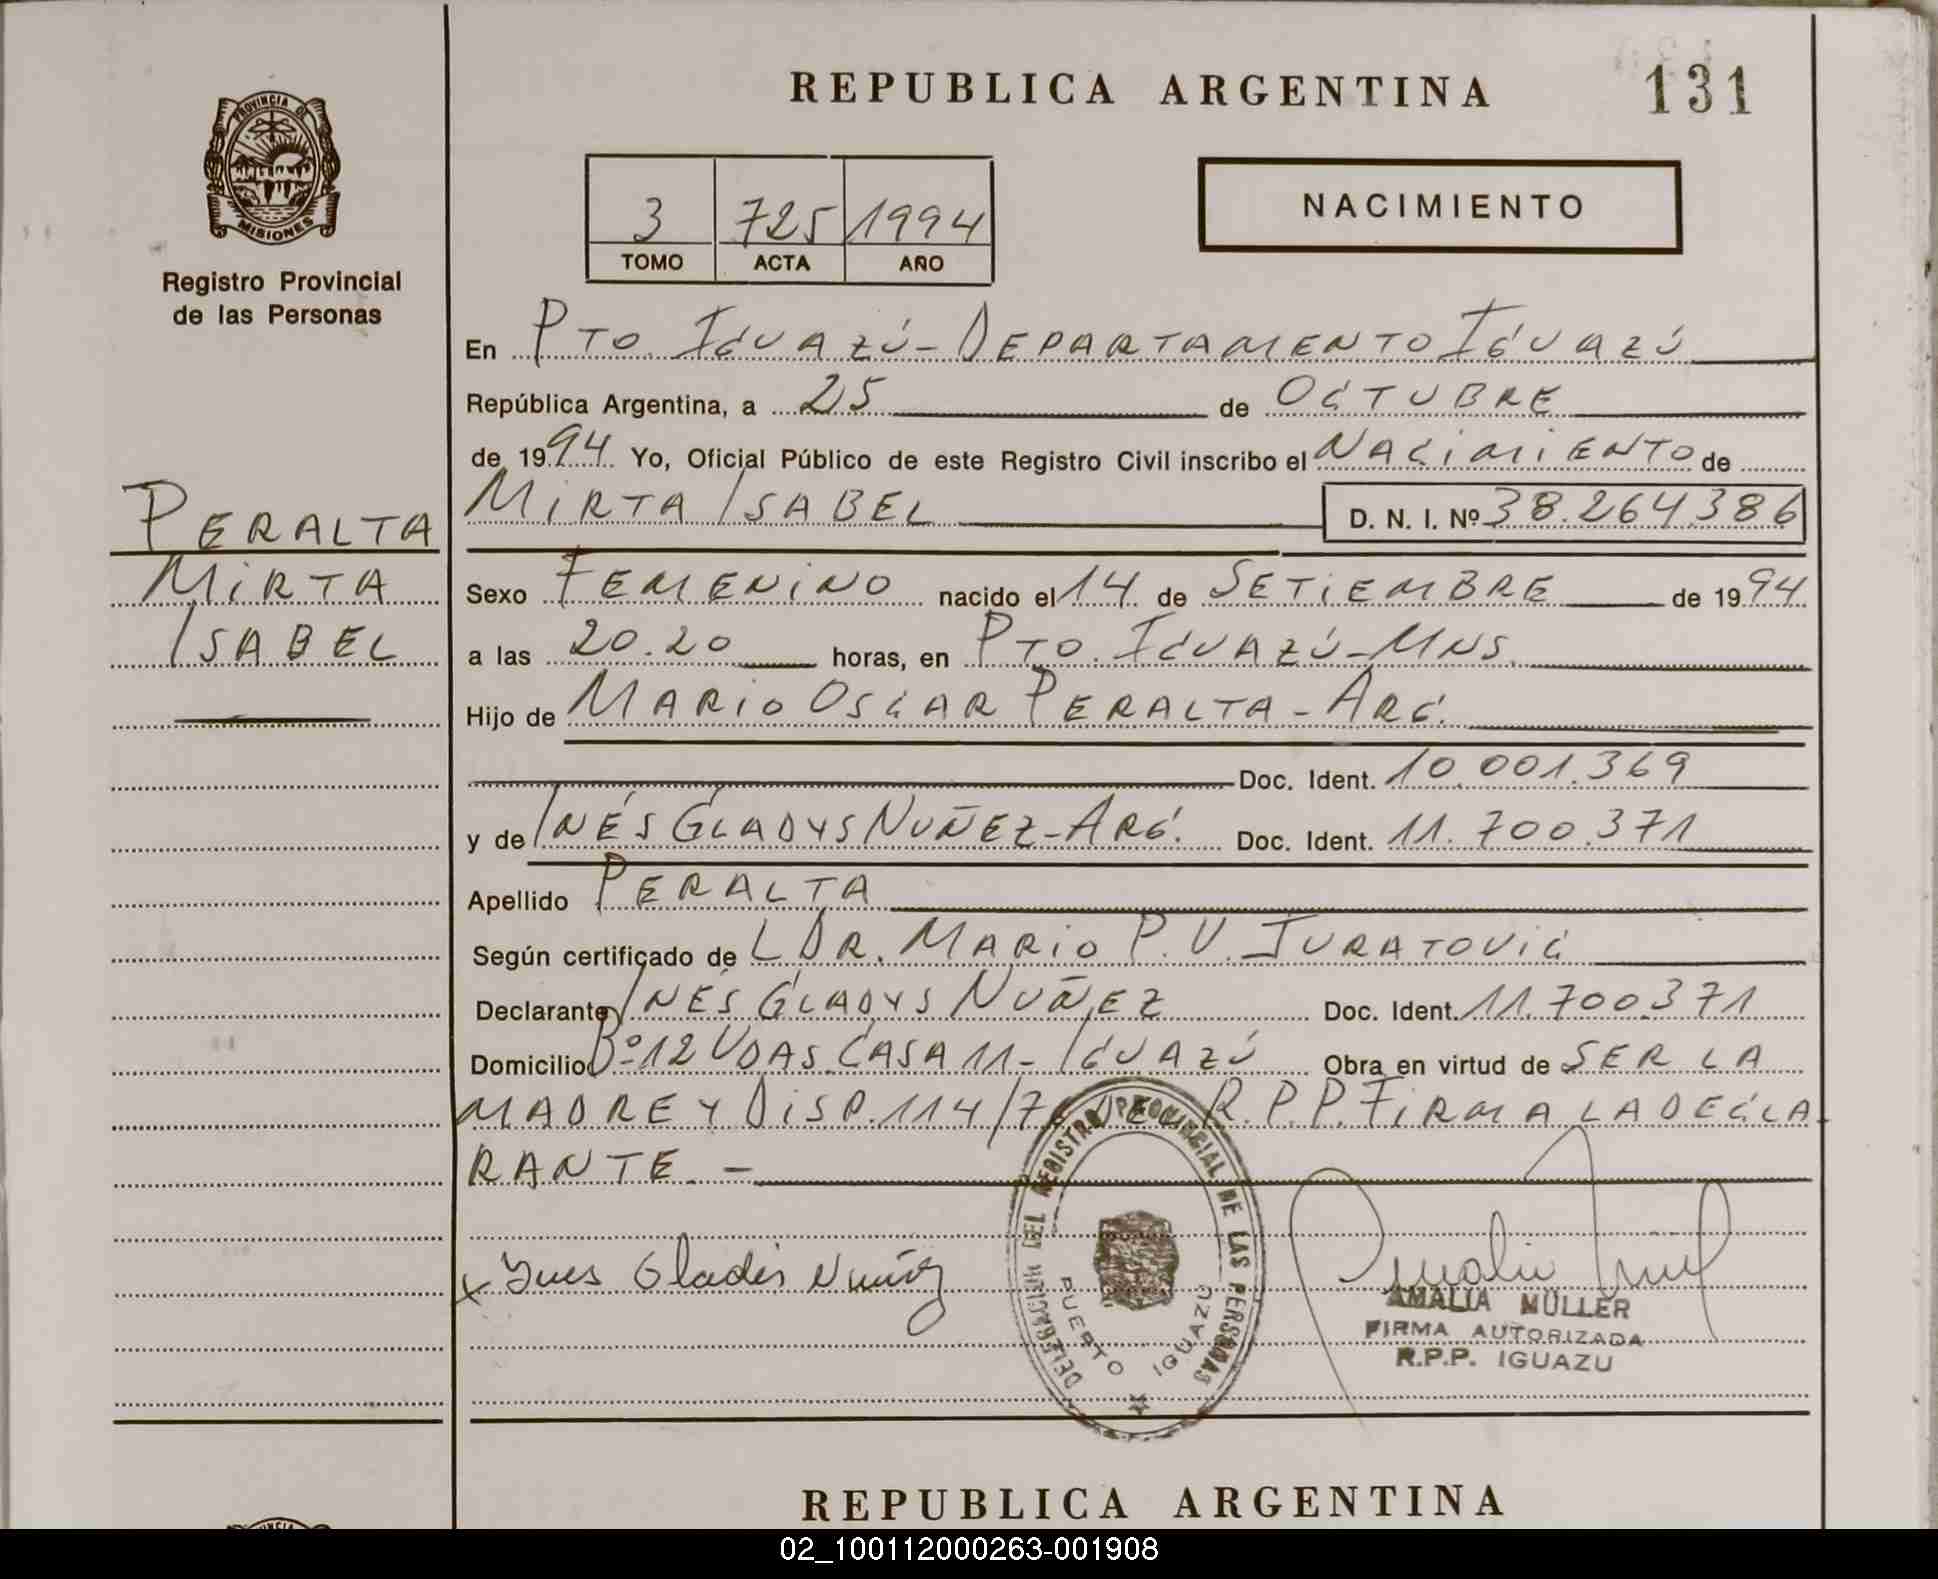 REPUBLICA ARGENTINA
131
PROVINCIA DE
MISIONES
Registro Provincial
de las Personas
3 725 1994
TOMO ACTA AÑO
NACIMIENTO
En PTO. IGUAZÚ - DEPARTAMENTO IGUAZÚ
República Argentina, a 25 de OCTUBRE
de 1994 Yo, Oficial Público de este Registro Civil inscribo el NACIMIENTO de
PERALTA
MIRTA ISABEL D. N. I. Nº 38.264.386
MIRTA
Sexo FEMENINO nacido el 14 de SETIEMBRE de 1994
ISABEL
a las 20.20 horas, en PTO. IGUAZÚ - MNS.
Hijo de MARIO OSCAR PERALTA - ARG.
Doc. Ident. 10.001.369
y de INÉS GLADYS NUÑEZ - ARG. Doc. Ident. 11.700.371
Apellido PERALTA
Según certificado de L DR. MARIO P. V. JURATOVIC
Declarante INÉS GLADYS NUÑEZ Doc. Ident. 11.700.371
Domicilio Bº 12 VDAS. CASA 11 - IGUAZÚ Obra en virtud de SER LA
MADRE Y DISP. 114/7 DE R.P.P. FIRMA LA DECLA-
RANTE. -
DELEGACION DEL REGISTRO PROVINCIAL DE LAS PERSONAS
PUERTO IGUAZU
x Ines Gladis Nuñez
AMALIA MÜLLER
FIRMA AUTORIZADA
R.P.P. IGUAZU
REPUBLICA ARGENTINA
02_100112000263-001908